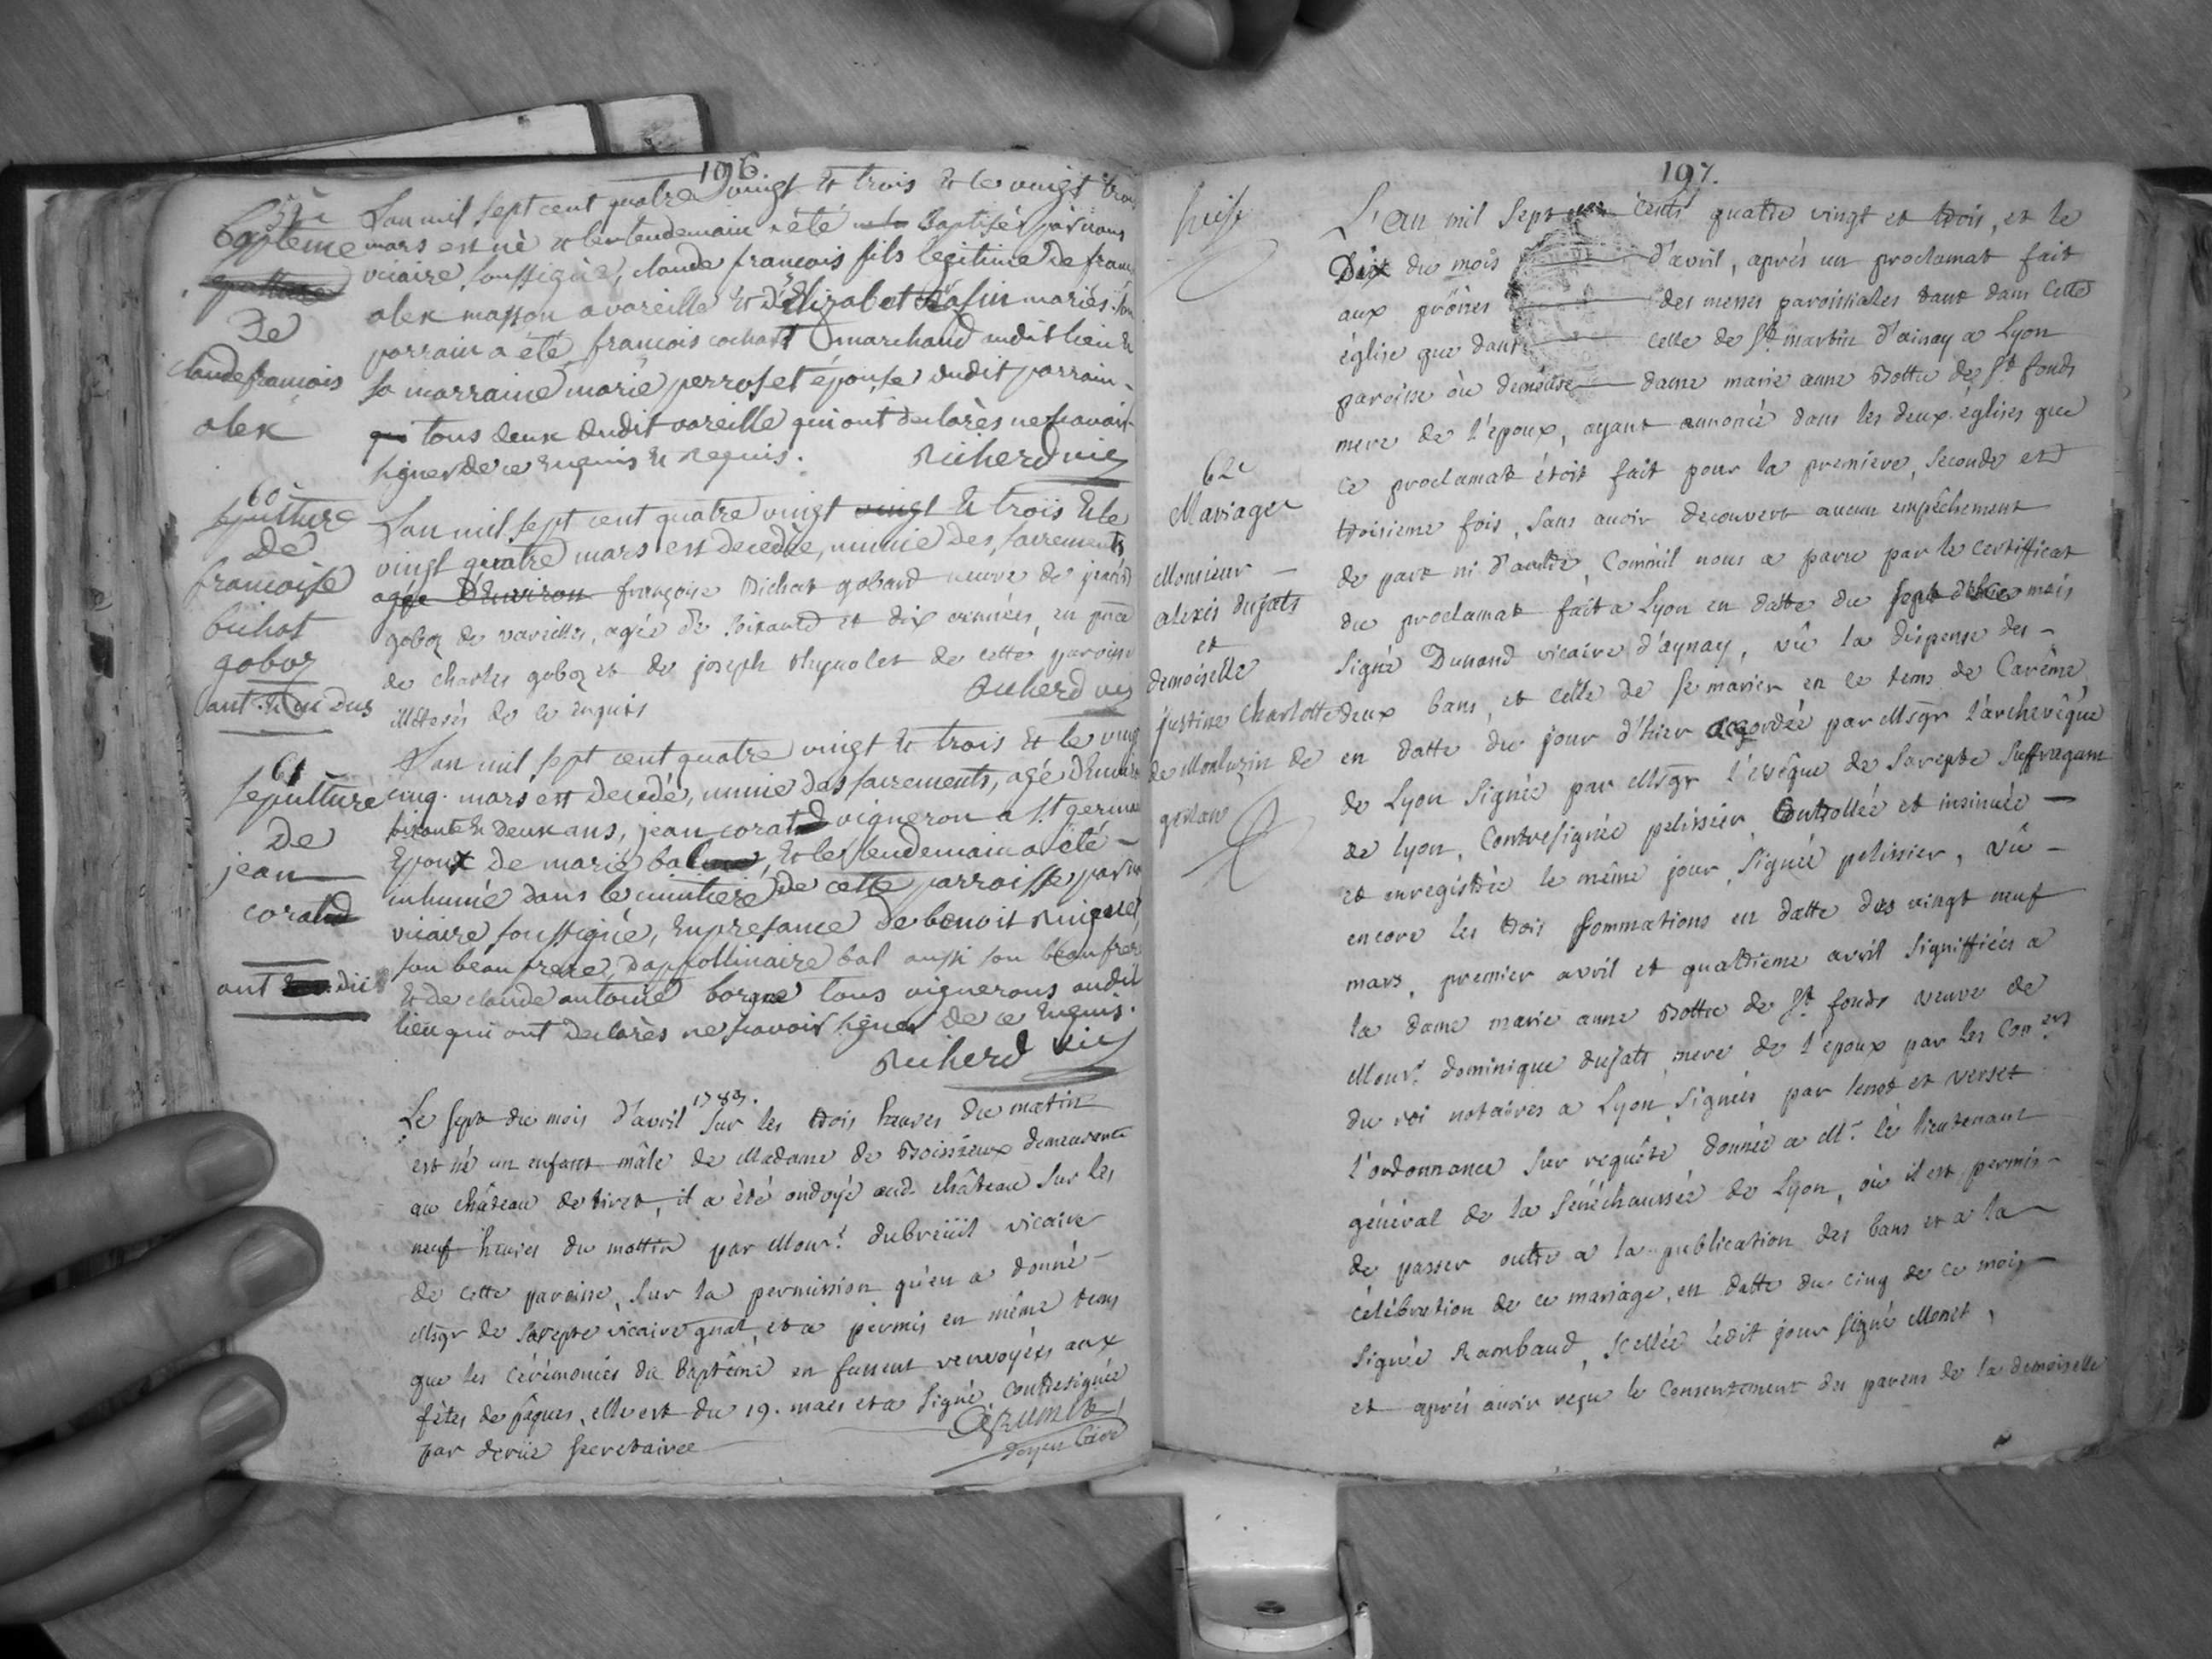 196.
59e
Baptême
De
claude francois
alex
L'an mil sept cent quatre vingt et trois et le vingt trois
mars est né et le lendemain a été Baptisé par nous
vicaire soussigné, claude francois fils legitime de franc
alex masson a vareille et d'Elizabet mariés. son
parrain a été francois cochet marchand audit lieu et
sa marraine marie perroset épouse dudit parrain
tous deux dudit vareille qui ont declarès ne savoir
signer de ce enquis et requis. Richerd vic
60e
sepulture
de
francoise
bichat
goboz
L'an mil sept cent quatre vingt vingt et trois et le
vingt quatre mars est decedée, munie des sacrements
agée d'Environ françoise Bichat gobard veuve de
goboz de vareilles, agée de soixante et dix années, en pnce
de charles goboz et de joseph de cette paroisse
illiterés de ce enquis Richerd vic
61
sepulture
De
jean
corat
L'an mil sept cent quatre vingt et trois et le vingt
cinq. mars est decedé, munie des sacrements, agé d'Environ
soixante et deux ans, jean corat vigneron a St germain
Epoux de marie bal, et le lendemain a été
inhumé dans le cimitiere de cette parroisse par nous
vicaire soussigné, En presance de benoit
son beau frere, d'appollinaire bal aussi son beau frere
et de claude antoine borgne tous vignerons audit
lieu qui ont declarès ne savoir signer de ce Enquis.
Richerd vic
Le sept du mois d'avril 1783. sur les trois heures du matin
est né un enfant mâle de Madame de Boissieux demeurante
au château de tiret, il a été ondoyé aud. château sur les
neuf heures du mattin par Monsr. dubreüil vicaire
de cette paroisse, sur la permission qu'en a donné
Msgr de Sarepte vicaire gnal, et a permis en même tems
que les cérémonies du baptême en fussent renvoyées aux
fêtes de pâques, elle est du 19. mars et a signé, contresignée
par secretaire
doyen Curé
197.
62e
Mariage
Monsieur
alexis dujats
et
demoiselle
justine Charlotte
de Monluzin de
gerlan
L'an mil sept cents quatre vingt et trois, et le
Dix du mois d'avril, aprés un proclamat fait
aux prônes des messes paroissiales tant dans cette
église que dans celle de St. martin d'ainay a Lyon
paroisse où demeure dame marie anne Bottu de St. fonds
mere de l'époux, ayant annoncé dans les deux églises que
ce proclamat étoit fait pour la premiere, seconde et
troisieme fois, sans avoir decouvert aucun empêchement
de part ni d'autre, Comm'il nous a paru par le certifficat
du proclamat fait a Lyon en datte du sept de ce mois
signé Dunand vicaire d'aynay, vû la dispense des
deux bans, et celle de se marier en ce tems de Carême
en datte du jour d'hier accordée par Msgr l'archevêque
de Lyon signée par Msgr l'evêque de Sarepte suffragant
de lyon, Contresignée pelissier, Controllée et insinuée
et enregistrée le même jour, signée pelissier, vû
encore les trois sommations en datte des vingt neuf
mars, premier avril et quatrieme avril signiffiées a
la dame marie anne Bottu de St. fonds veuve de
Monsr. dominique dujats mere de l'epoux par les Coners
du roi notaires a Lyon, signées par et verset
l'ordonnance sur requête donnée a Mr. le lieutenant
général de la Sénéchaussée de Lyon, où il est permis
de passer outre a la publication des bans et a la
célébration de ce mariage, en datte du cinq de ce mois
signée Rambaud, scellée ledit jour signé Monet,
et aprés avoir reçu le Consentement des parens de la demoiselle